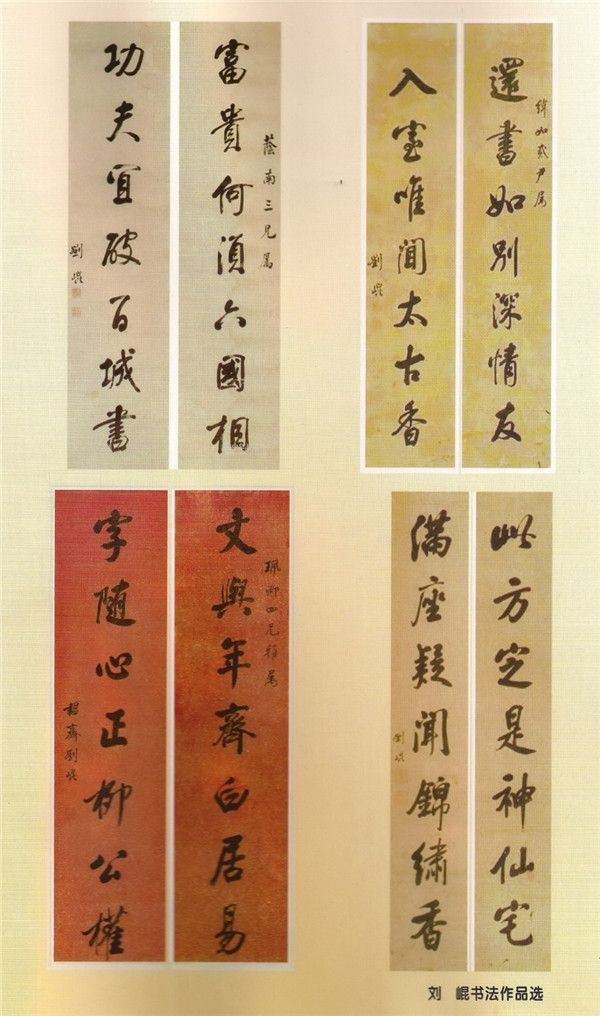 富貴何須六國相
蔭南三兄屬
功夫宜破百城書
劉崐
還書如別深情友
緯如貳尹屬
入室唯聞太古香
劉崐
文與年齊白居易
珮卿四兄雅屬
字隨心正柳公權
韞齋劉崐
此方定是神仙宅
滿座疑聞錦繡香
劉崐
刘 崐书法作品选